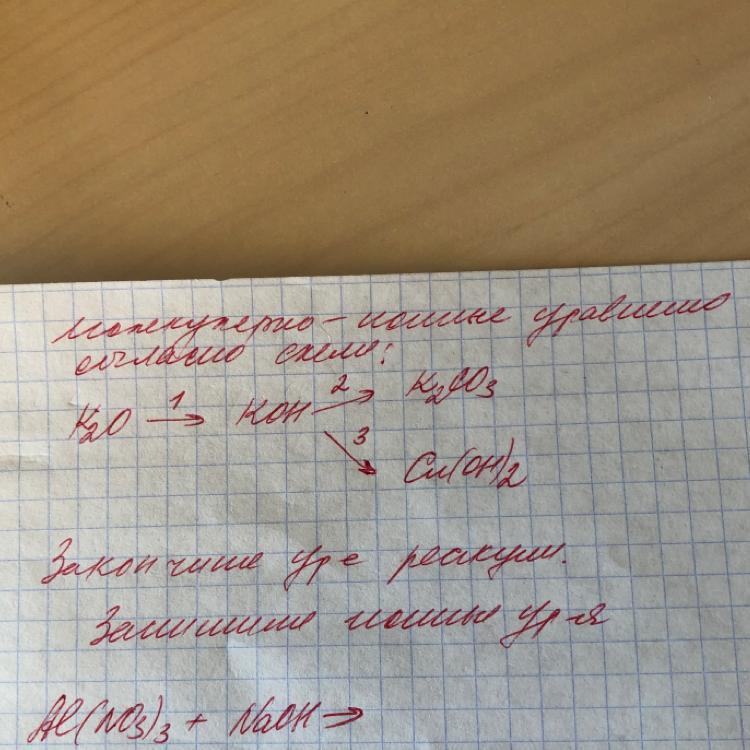 молекулярно-ионные уравнение
согласно схеме:
K₂O —1→ KOH —2→ K₂CO₃
—3→ Cu(OH)₂
Закончите ур-е реакции.
Запишите ионные ур-я
Al(NO₃)₃ + NaOH →